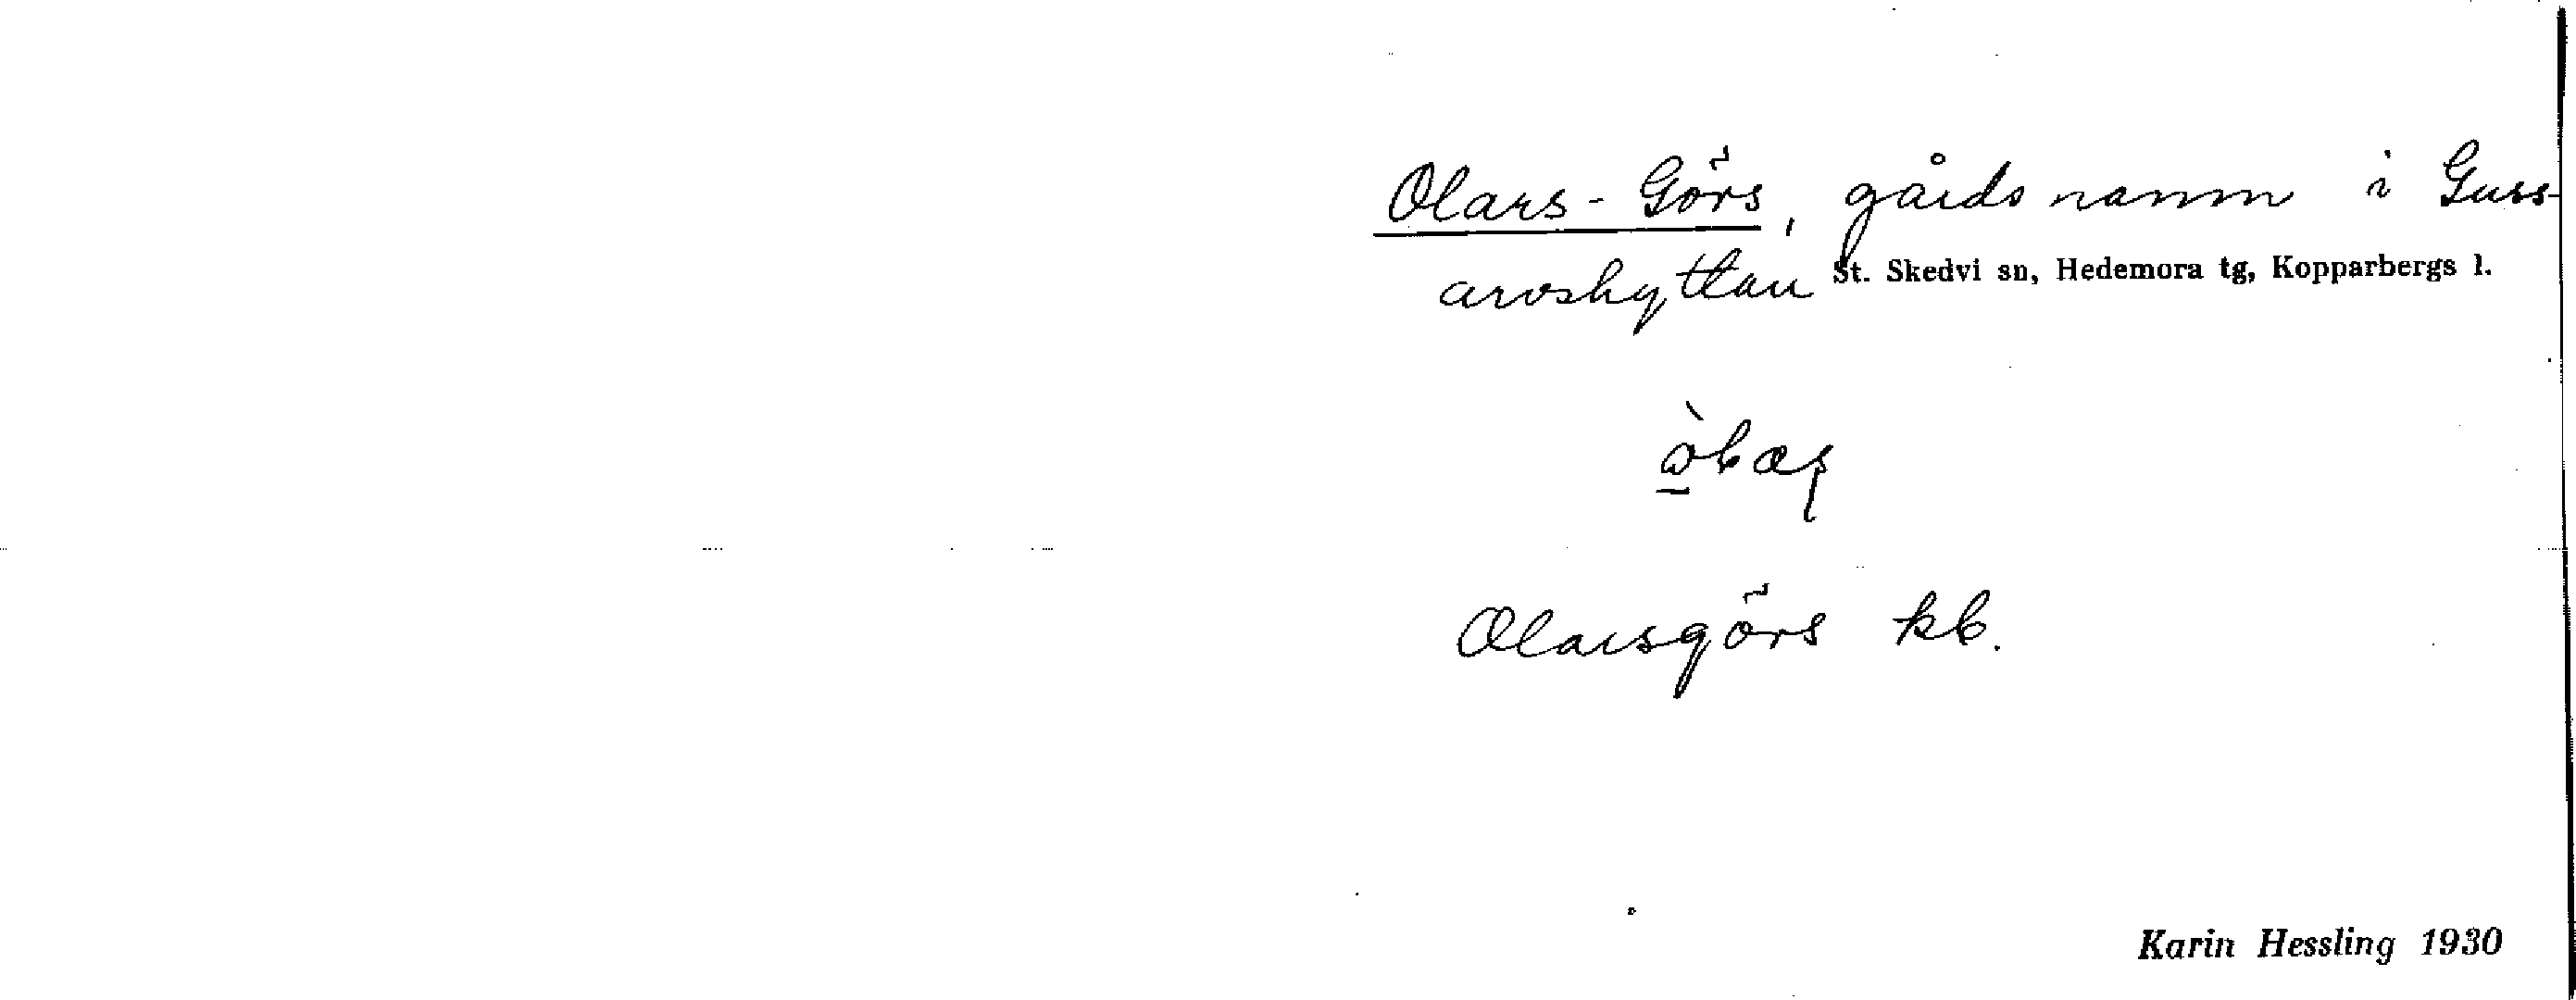 Olars-Görs, gårdsnamn i Guss-
arvshyttan St. Skedvi sn, Hedemora tg, Kopparbergs l.
Olarsgörs kb.
Karin Hessling 1930